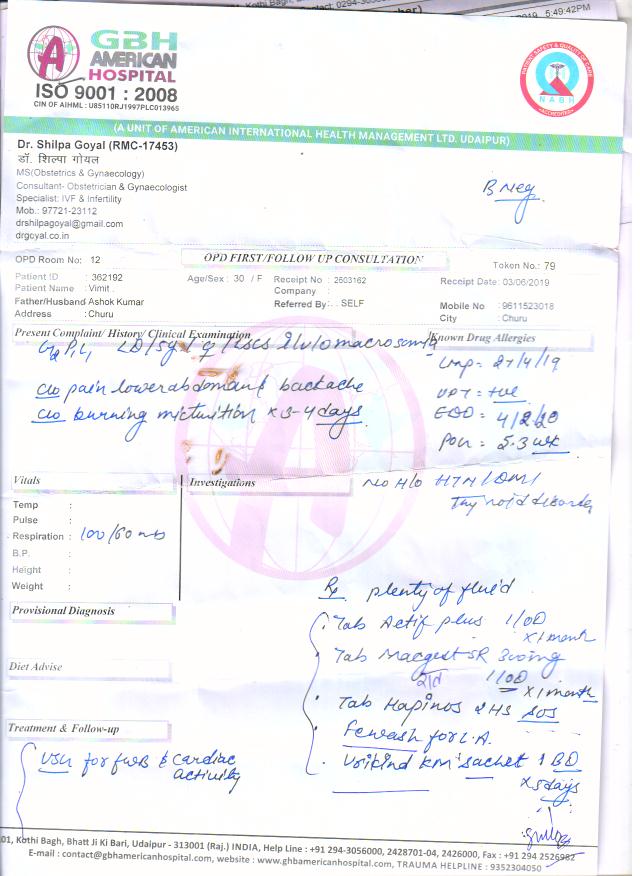 5:49:42PM
GBH
AMERICAN
HOSPITAL
ISO 9001 : 2008
CIN OF AIHML : U85110RJ1997PLC013965
NABH
(A UNIT OF AMERICAN INTERNATIONAL HEALTH MANAGEMENT LTD. UDAIPUR)
Dr. Shilpa Goyal (RMC-17453)
डॉ. शिल्पा गोयल
MS(Obstetrics & Gynaecology)
Consultant- Obstetrician & Gynaecologist
Specialist: IVF & Infertility
Mob.: 97721-23112
drshilpagoyal@gmail.com
drgoyal.co.in
B Neg
OPD Room No: 12 OPD FIRST/FOLLOW UP CONSULTATION Token No.: 79
Patient ID : 362192 Age/Sex : 30 / F Receipt No : 2603162 Receipt Date: 03/06/2019
Patient Name : Vimit . Company :
Father/Husband Ashok Kumar Referred By: . SELF Mobile No : 9611523018
Address : Churu City : Churu
Present Complaint/ History/ Clinical Examination Known Drug Allergies
G2P1L1 LD/5yr LSCS macrosomia
LMP = 27/4/19
c/o pain lower abdomen & backache
UPT = +ve
EDD = 4/2/20
c/o burning micturition x 3-4 days
POG = 5.3 wk
Vitals Investigations
No H/o HTN/DM/
Thyroid disorder
Temp :
Pulse :
Respiration : 100/60
B.P. :
Height :
Weight :
Rx plenty of fluid
Provisional Diagnosis
Tab Actif plus 1 OD
x 1 month
Tab Macgest SR 300mg
1 OD
x 1 month
Diet Advise
Tab Hapinos 2 HS SOS
Treatment & Follow-up
Fewash for L.A.
USG for FWB & cardiac
activity
Urikind KM sachet 1 BD
x 5 days
01, Kothi Bagh, Bhatt Ji Ki Bari, Udaipur - 313001 (Raj.) INDIA, Help Line : +91 294-3056000, 2428701-04, 2426000, Fax : +91 294 2526982
E-mail : contact@gbhamericanhospital.com, website : www.gbhamericanhospital.com, TRAUMA HELPLINE : 9352304050